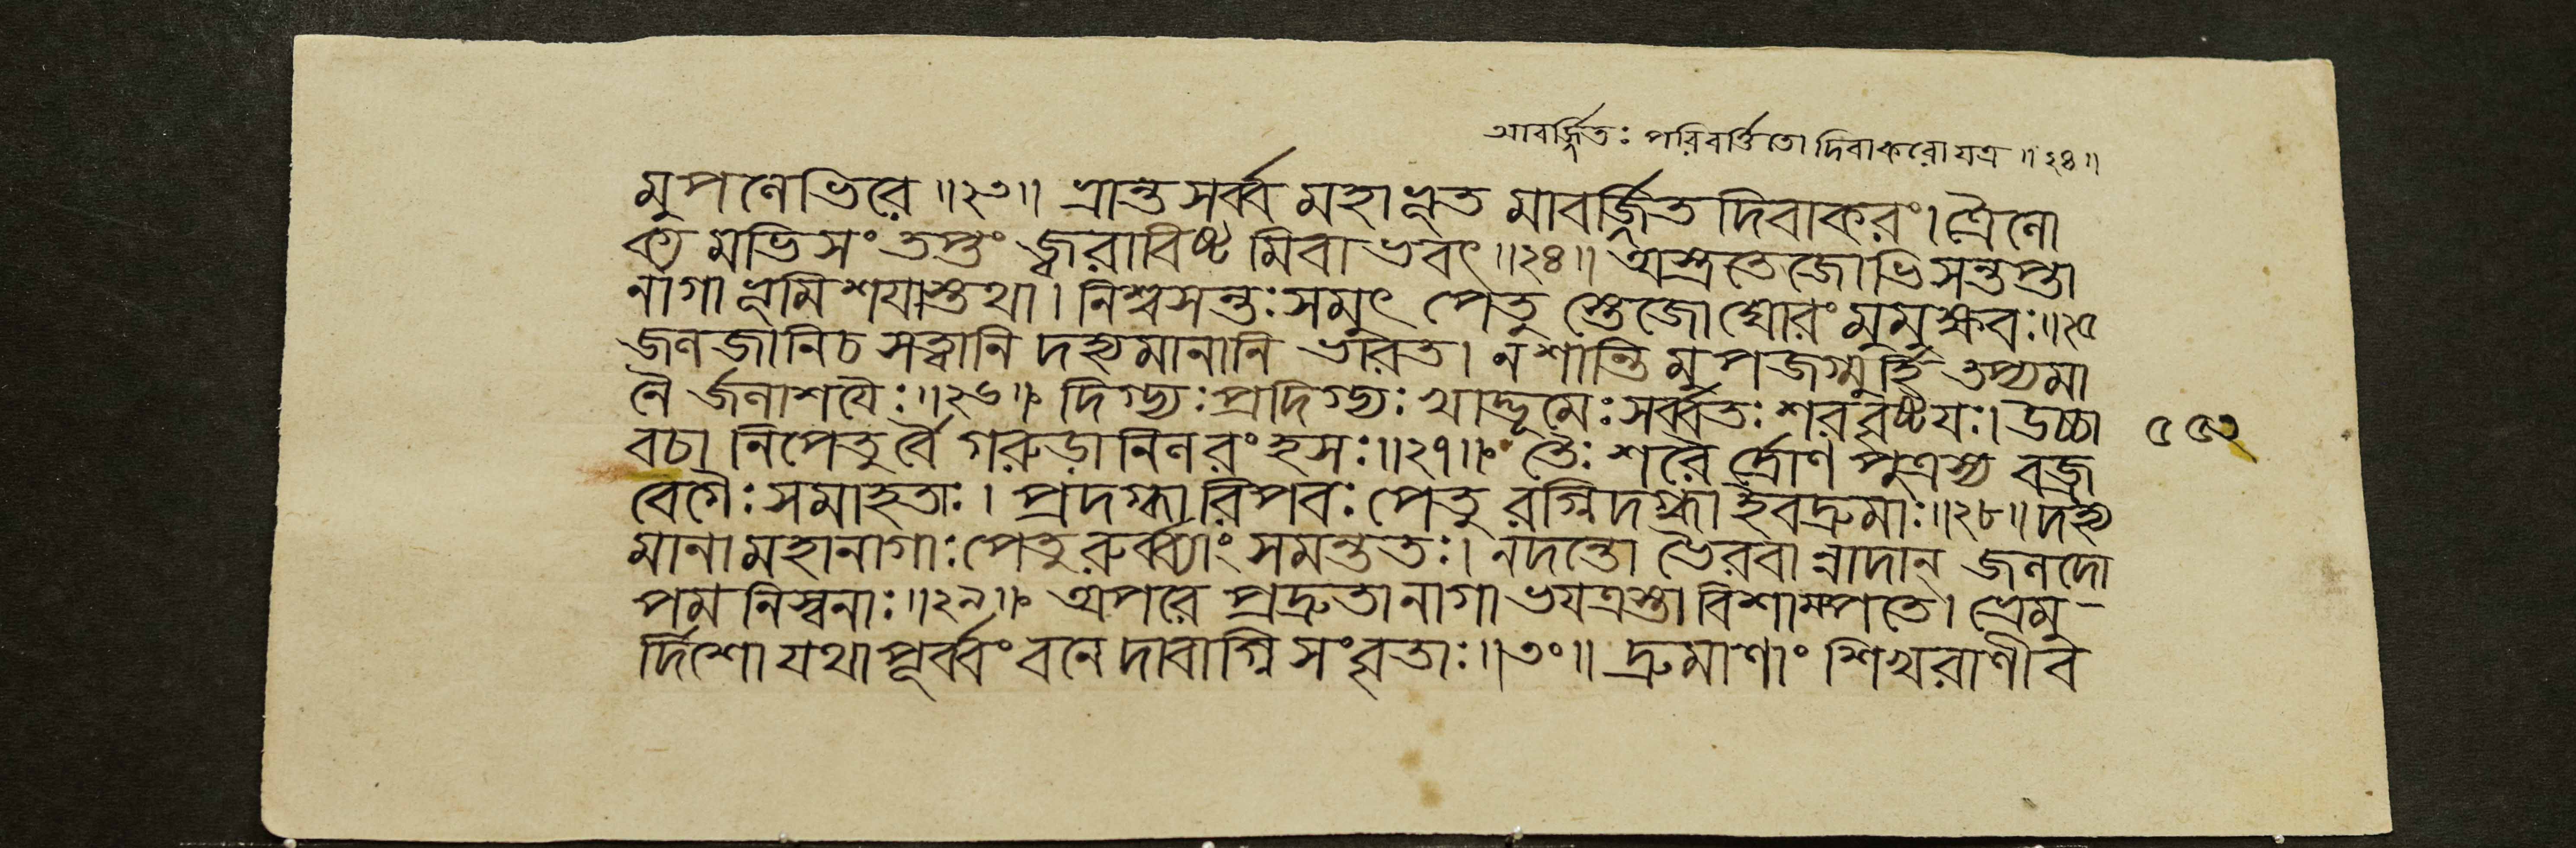 আবর্জ্জিতঃ পরিবর্ত্তিতো দিবাকরো যত্র ॥২৪॥
মুপলেভিরে ॥২৩॥ ভ্রান্তসর্ব্বমহাভূতমাবর্জ্জিতদিবাকরং। ত্রৈলো
ক্যমভিসংতপ্তং জ্বরাবিষ্টমিবাভবৎ ॥২৪॥ অস্ত্রতেজোভিসন্তপ্তা
নাগা ভূমিশয়াস্তথা। নিশ্বসন্তঃ সমুৎপেতুস্তেজোঘোরং মুমুক্ষবঃ ॥২৫
জলজানি চ সত্ত্বানি দহ্যমানানি ভারত। ন শান্তিমুপজগ্মুর্হি তপ্যমা
নৈর্জলাশয়ৈঃ ॥২৬॥ দিগ্ভ্যঃ প্রদিগ্ভ্যঃ খাদ্ভূমেঃ সর্ব্বতঃ শরবৃষ্টয়ঃ। উচ্চা
বচা নিপেতুর্বৈ গরুড়ানিলরংহসঃ ॥২৭॥ তৈঃ শরৈর্দ্রোণপুত্রস্য বজ্র
বেগৈঃ সমাহতাঃ। প্রদগ্ধা রিপবঃ পেতুরগ্নিদগ্ধা ইব দ্রুমাঃ ॥২৮॥ দহ্য
মানা মহানাগাঃ পেতুরুর্ব্ব্যাং সমন্ততঃ। নদন্তো ভৈরবান্নাদান্ জলদো
পমনিস্বনাঃ ॥২৯॥ অপরে প্রদ্রুতা নাগা ভয়ত্রস্তা বিশাম্পতে। ভ্রেমু-
র্দিশো যথাপূর্ব্বং বনে দাবাগ্নিসংবৃতাঃ ॥৩০॥ দ্রুমাণাং শিখরাণীব
৫৫২